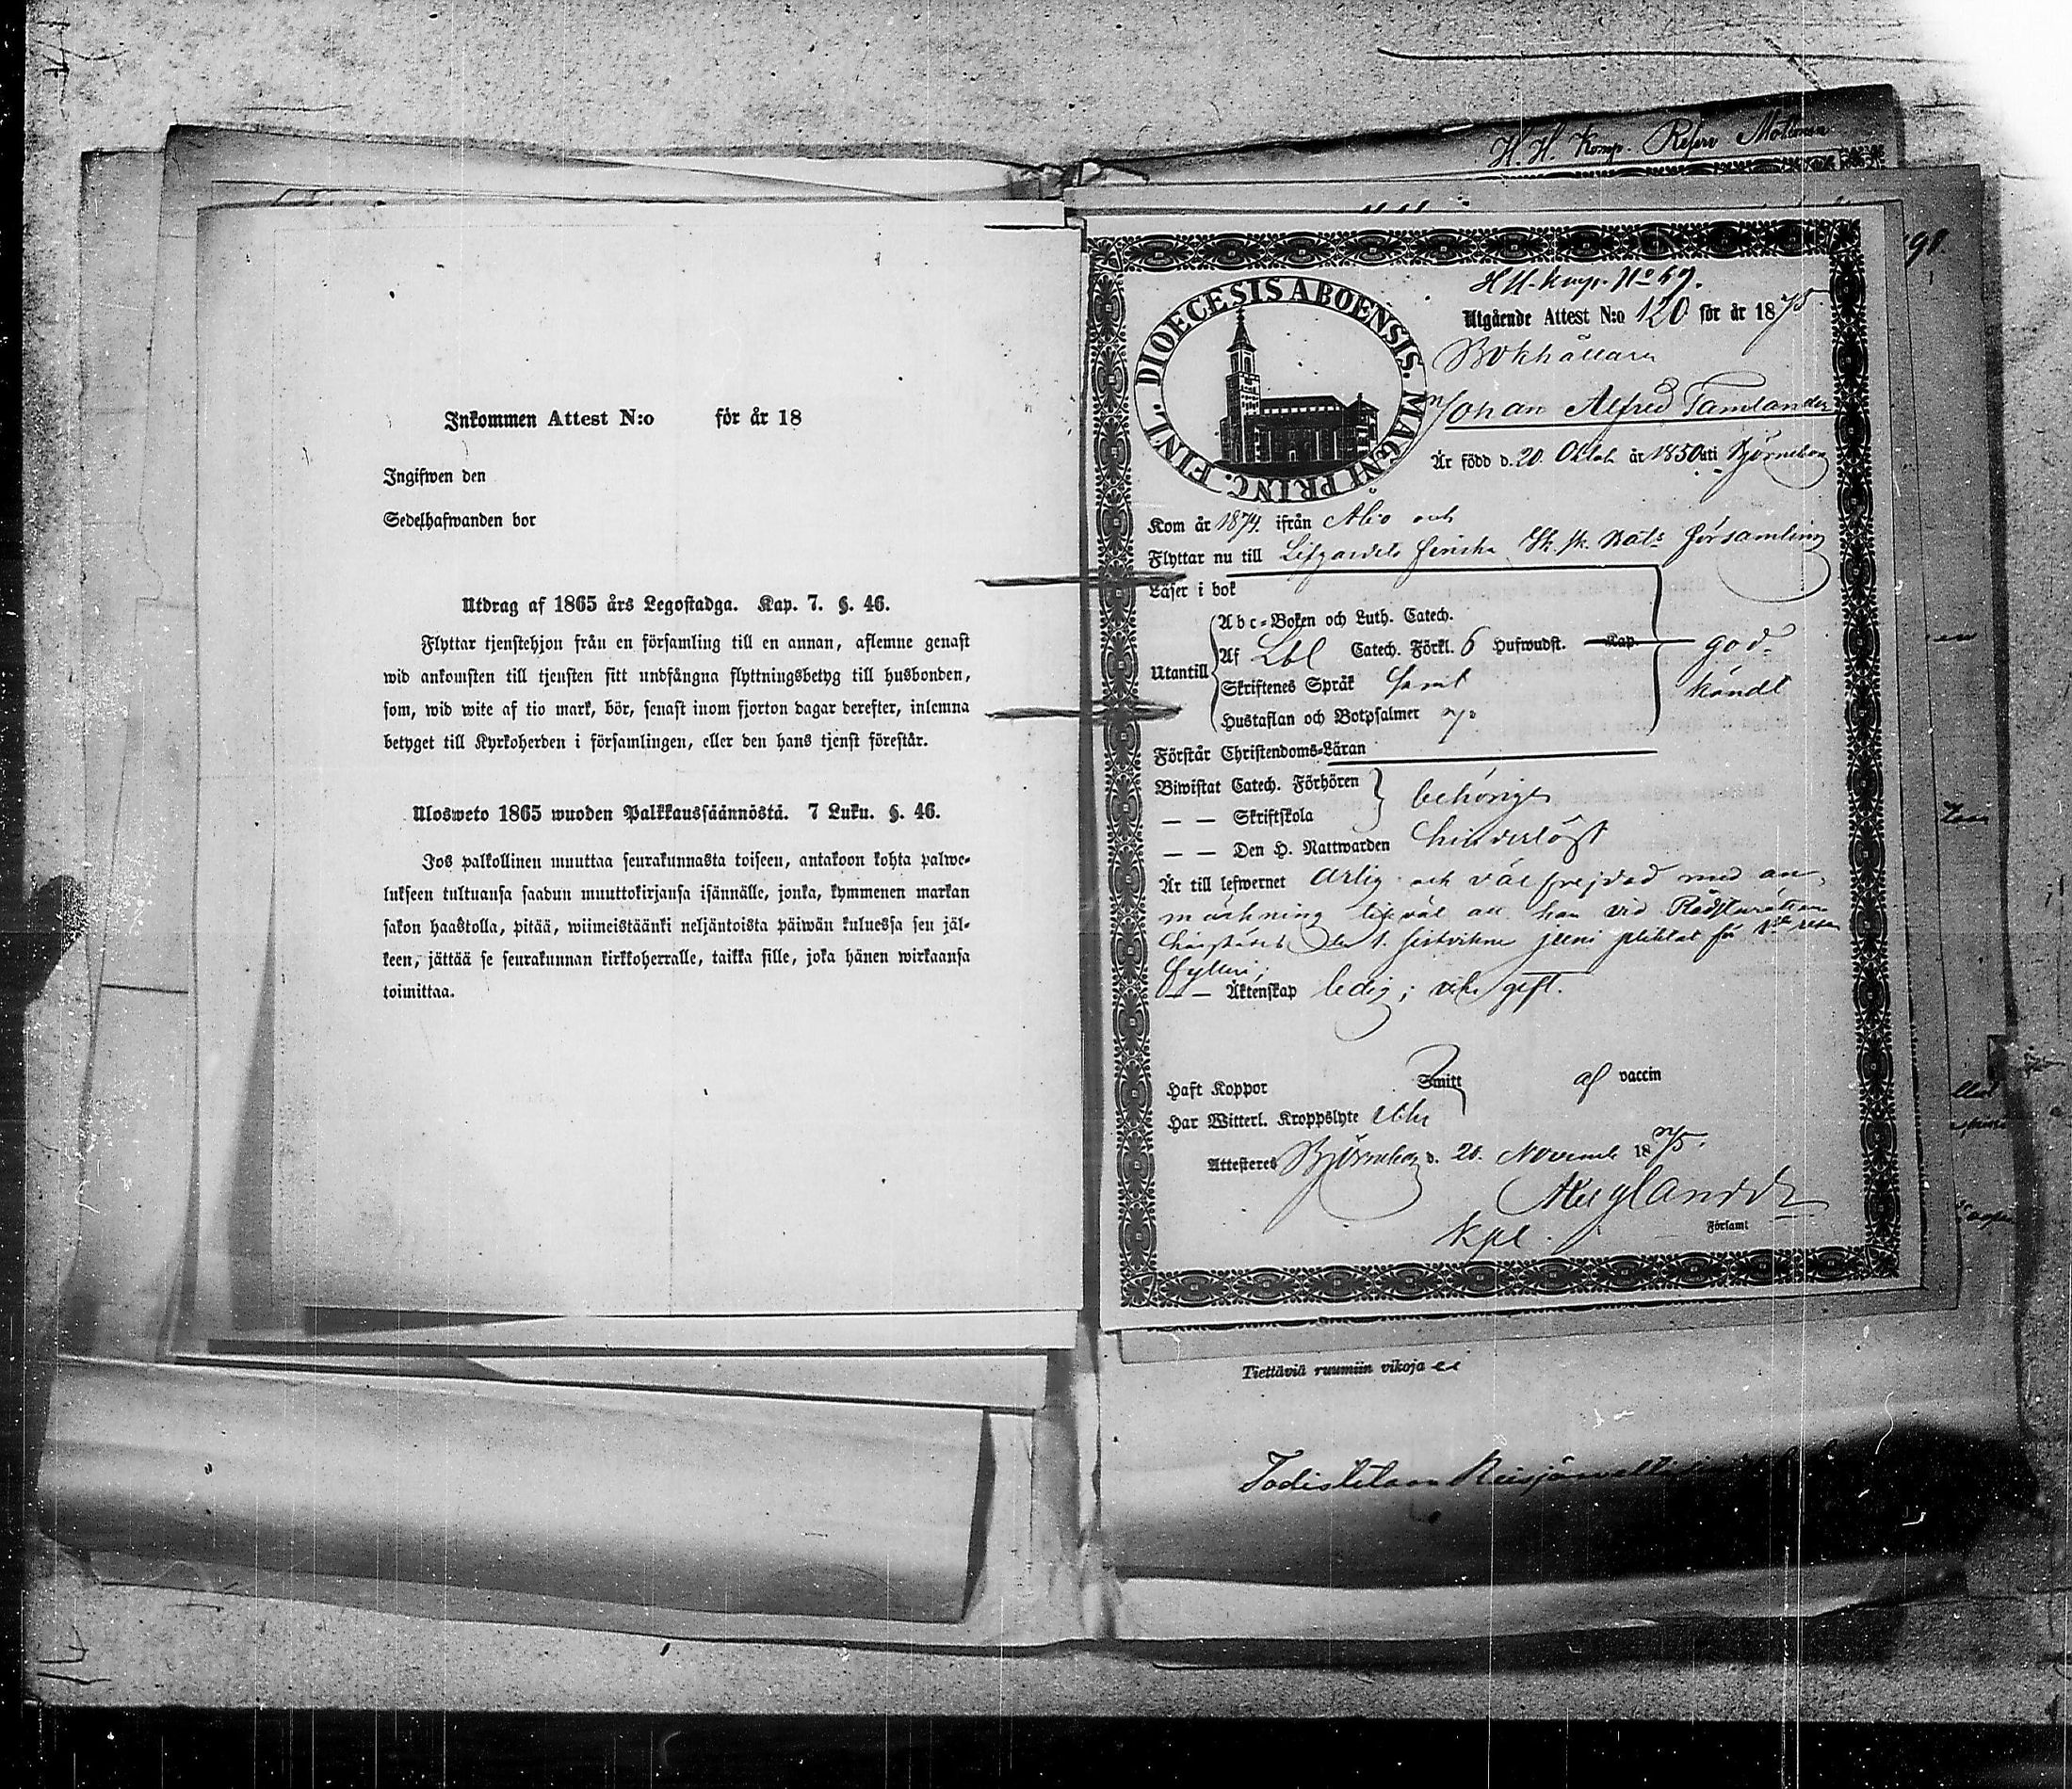 H. H. Komp. Reserv
Inkommen Attest N:o för år 18
Ingifwen den
Sedelhafwanden bor
Utdrag af 1865 års Legostadga. Kap. 7. §. 46.
Flyttar tjenstehjon från en församling till en annan, aflemne genast
wid ankomsten till tjensten sitt undfångna flyttningsbetyg till husbonden,
som, wid wite af tio mark, bör, senast inom fjorton dagar derefter, inlemna
betyget till Kyrkoherden i församlingen, eller den hans tjenst förestår.
Ulosweto 1865 wuoden Palkkaussäännöstä. 7 Luku. §. 46.
Jos palkollinen muuttaa seurakunnasta toiseen, antakoon kohta palwe-
lukseen tultuansa saadun muuttokirjansa isännälle, jonka, kymmenen markan
sakon haastolla, pitää, wiimeistäänki neljäntoista päiwän kuluessa sen jäl-
keen, jättää se seurakunnan kirkkoherralle, taikka sille, joka hänen wirkaansa
toimittaa.
DIOECESIS ABOENSIS. MAGNI PRINC. FINL.
Utgående Attest N:o 120 för år 1875
Bokhållare
Johan Alfred Tamlander
Är född d. 20 Oktob år 1850 uti Björneborg
Kom år 1874 ifrån Åbo och
Flyttar nu till Lifgardets Finska Sk. sk. Bat:s församling
Läser i bok
Abc-Boken och Luth. Catech.
Utantill Af Lbl Catech. Förkl. 6 Hufwudst. Kap. god-
Skriftenes Språk saml känd
Hustaflan och Botpsalmer
Förstår Christendoms-Läran
Biwistat Catech. Förhören behörigen
— — Skriftskola
— — Den H. Nattwarden hinderlöst
Är till lefwernet ärlig och väl frejdad med an-
märkning likväl att han vid Rådsturätten
härstädes den 1. sistvikne juni pliktat för
fylleri;
— — Äktenskap ledig; icke gift.
Haft Koppor Smitt af vaccin
Har Witterl. Kroppslyte icke
Attesteras Björneborg d. 20 November 1875.
Kpl. i Församl
Tiettäviä ruumiin vikoja ei
Todistetaan